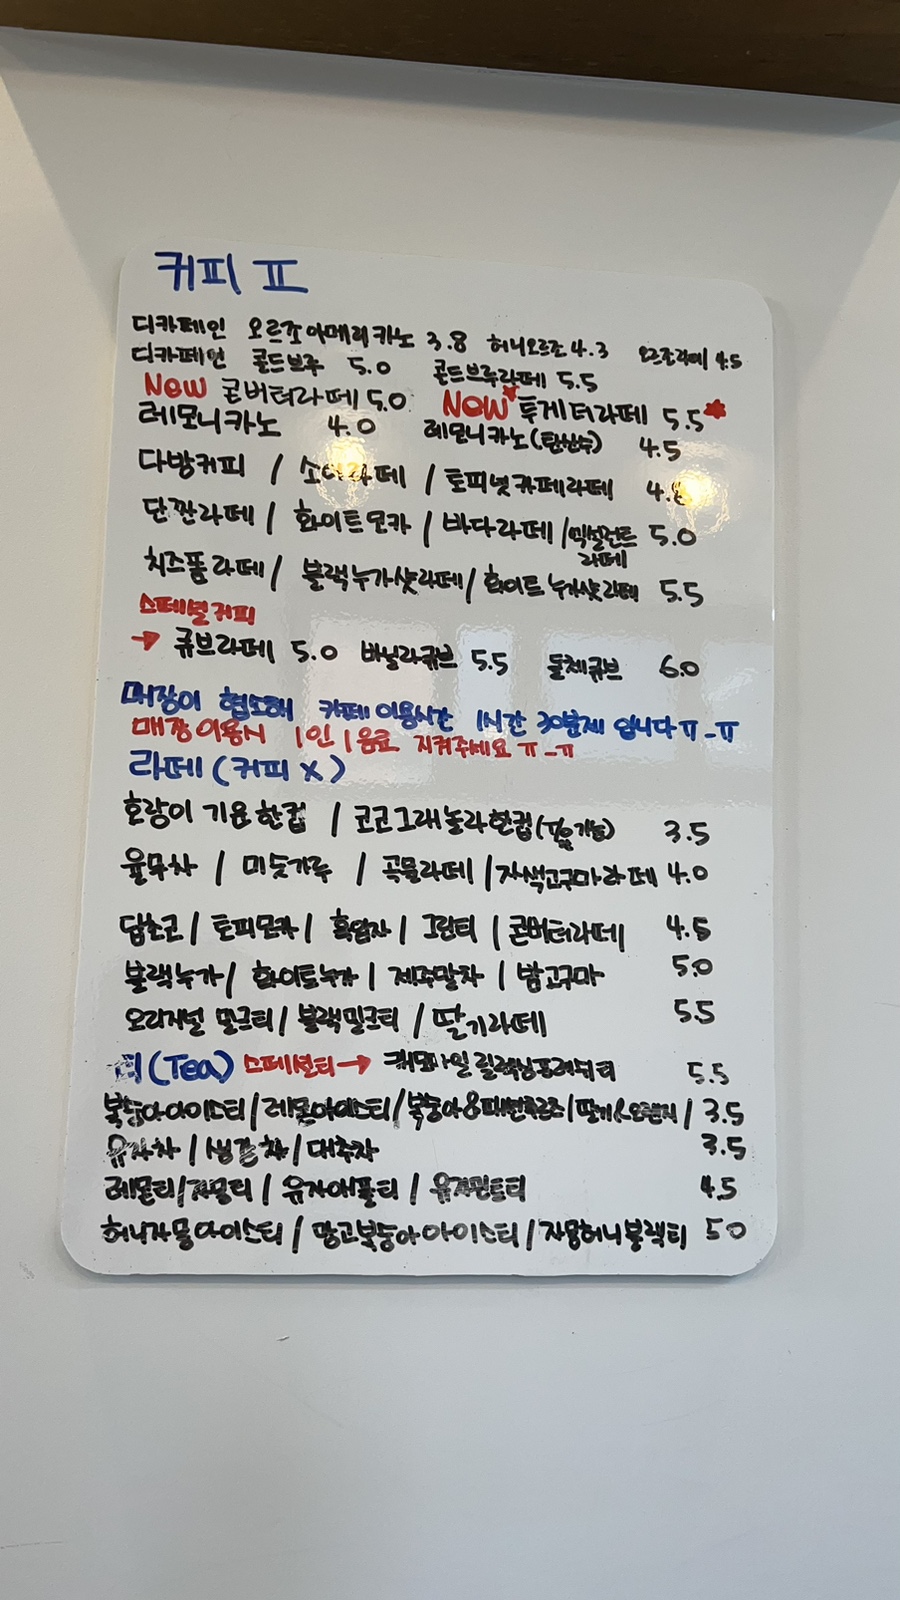 커피 Ⅱ
디카페인 오르조아메리카노 3.8 허니오르조 4.3 오르조라떼 4.5
디카페인 콜드브루 5.0 콜드브루라떼 5.5
New 콘버터라떼 5.0 New 투게더라떼 5.5
레모니카노 4.0 레모니카노(탄산수) 4.5
다방커피 / 소이라떼 / 토피넛카페라떼
단짠라떼 / 화이트모카 / 바다라떼 / 엑설런트라떼 5.0
치즈폼라떼 / 블랙누가샷라떼 / 화이트누가샷라떼 5.5
스페셜커피
→ 큐브라떼 5.0 바닐라큐브 5.5 돌체큐브 6.0
매장이 협소해 카페이용시간 1시간 30분제 입니다 ㅠ_ㅠ
매장이용시 1인 1음료 지켜주세요 ㅠ_ㅠ
라떼(커피 X)
호랑이 기운한컵 / 코코그래놀라한컵 3.5
율무차 / 미숫가루 / 곡물라떼 / 자색고구마라떼 4.0
딥초코 / 토피모카 / 흑임자 / 그린티 / 콘버터라떼 4.5
블랙누가 / 화이트누가 / 제주말차 / 밤고구마 5.0
오리지널 밀크티 / 블랙밀크티 / 딸기라떼 5.5
티(Tea) 스페셜티→ 캐모마일 릴렉싱프레쉬티 5.5
복숭아아이스티 / 레몬아이스티 / 복숭아&패션후르츠 / 딸기&오렌지 / 3.5
유자차 / 생강차 / 대추차 3.5
레몬티 / 자몽티 / 유자애플티 / 유자민트티 4.5
허니자몽아이스티 / 망고복숭아아이스티 / 자몽허니블랙티 5.0